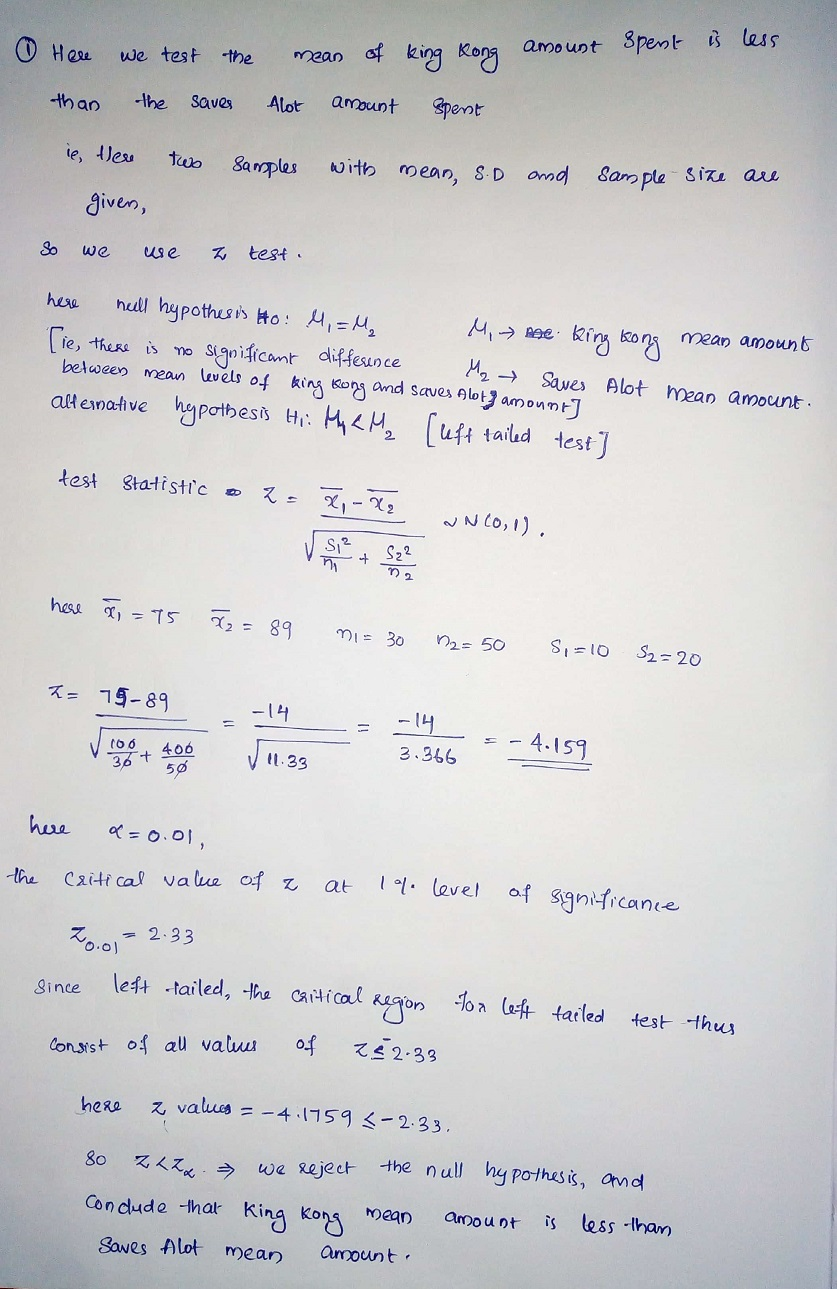 ① Here we test the mean of king Kong amount Spent is less
than the saves Alot amount Spent
ie, Here two Samples with mean, S.D and Sample Size are
given,
So we use Z test.
here null hypothesis H0: M₁ = M₂
M₁ → King Kong mean amount
[ie, there is no significant diffesence
M₂ → Saves Alot mean amount.
between mean levels of king Kong and saves Alot amount]
alternative hypothesis H₁: M₁ < M₂ [left tailed test]
test Statistic Z = (x̄₁ - x̄₂) / √(S₁²/n₁ + S₂²/n₂) ~ N(0,1).
here x̄₁ = 75 x̄₂ = 89 n₁ = 30 n₂ = 50 S₁ = 10 S₂ = 20
Z = (75-89) / √(100/30 + 400/50) = -14 / √11.33 = -14 / 3.366 = -4.159
here α = 0.01,
the Critical value of z at 1% level of significance
Z₀.₀₁ = 2.33
Since left tailed, the critical region for left tailed test thus
Consist of all values of Z ≤ -2.33
here z values = -4.1759 ≤ -2.33.
So Z < Zα. ⇒ we reject the null hypothesis, and
Conclude that King Kong mean amount is less than
Saves Alot mean amount.